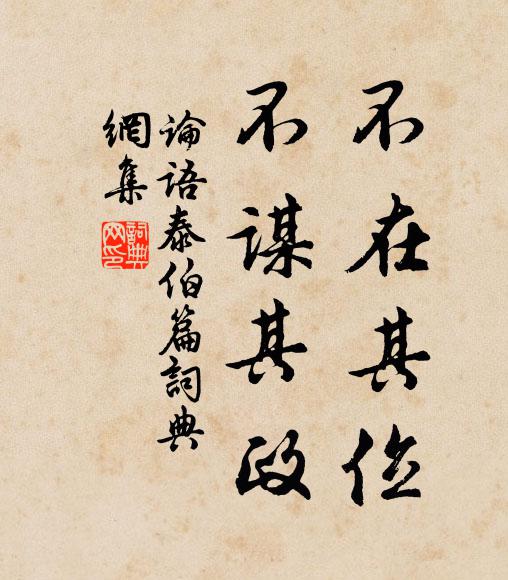 不在其位
不謀其政
論語泰伯篇詞典
網集
詞典
网印